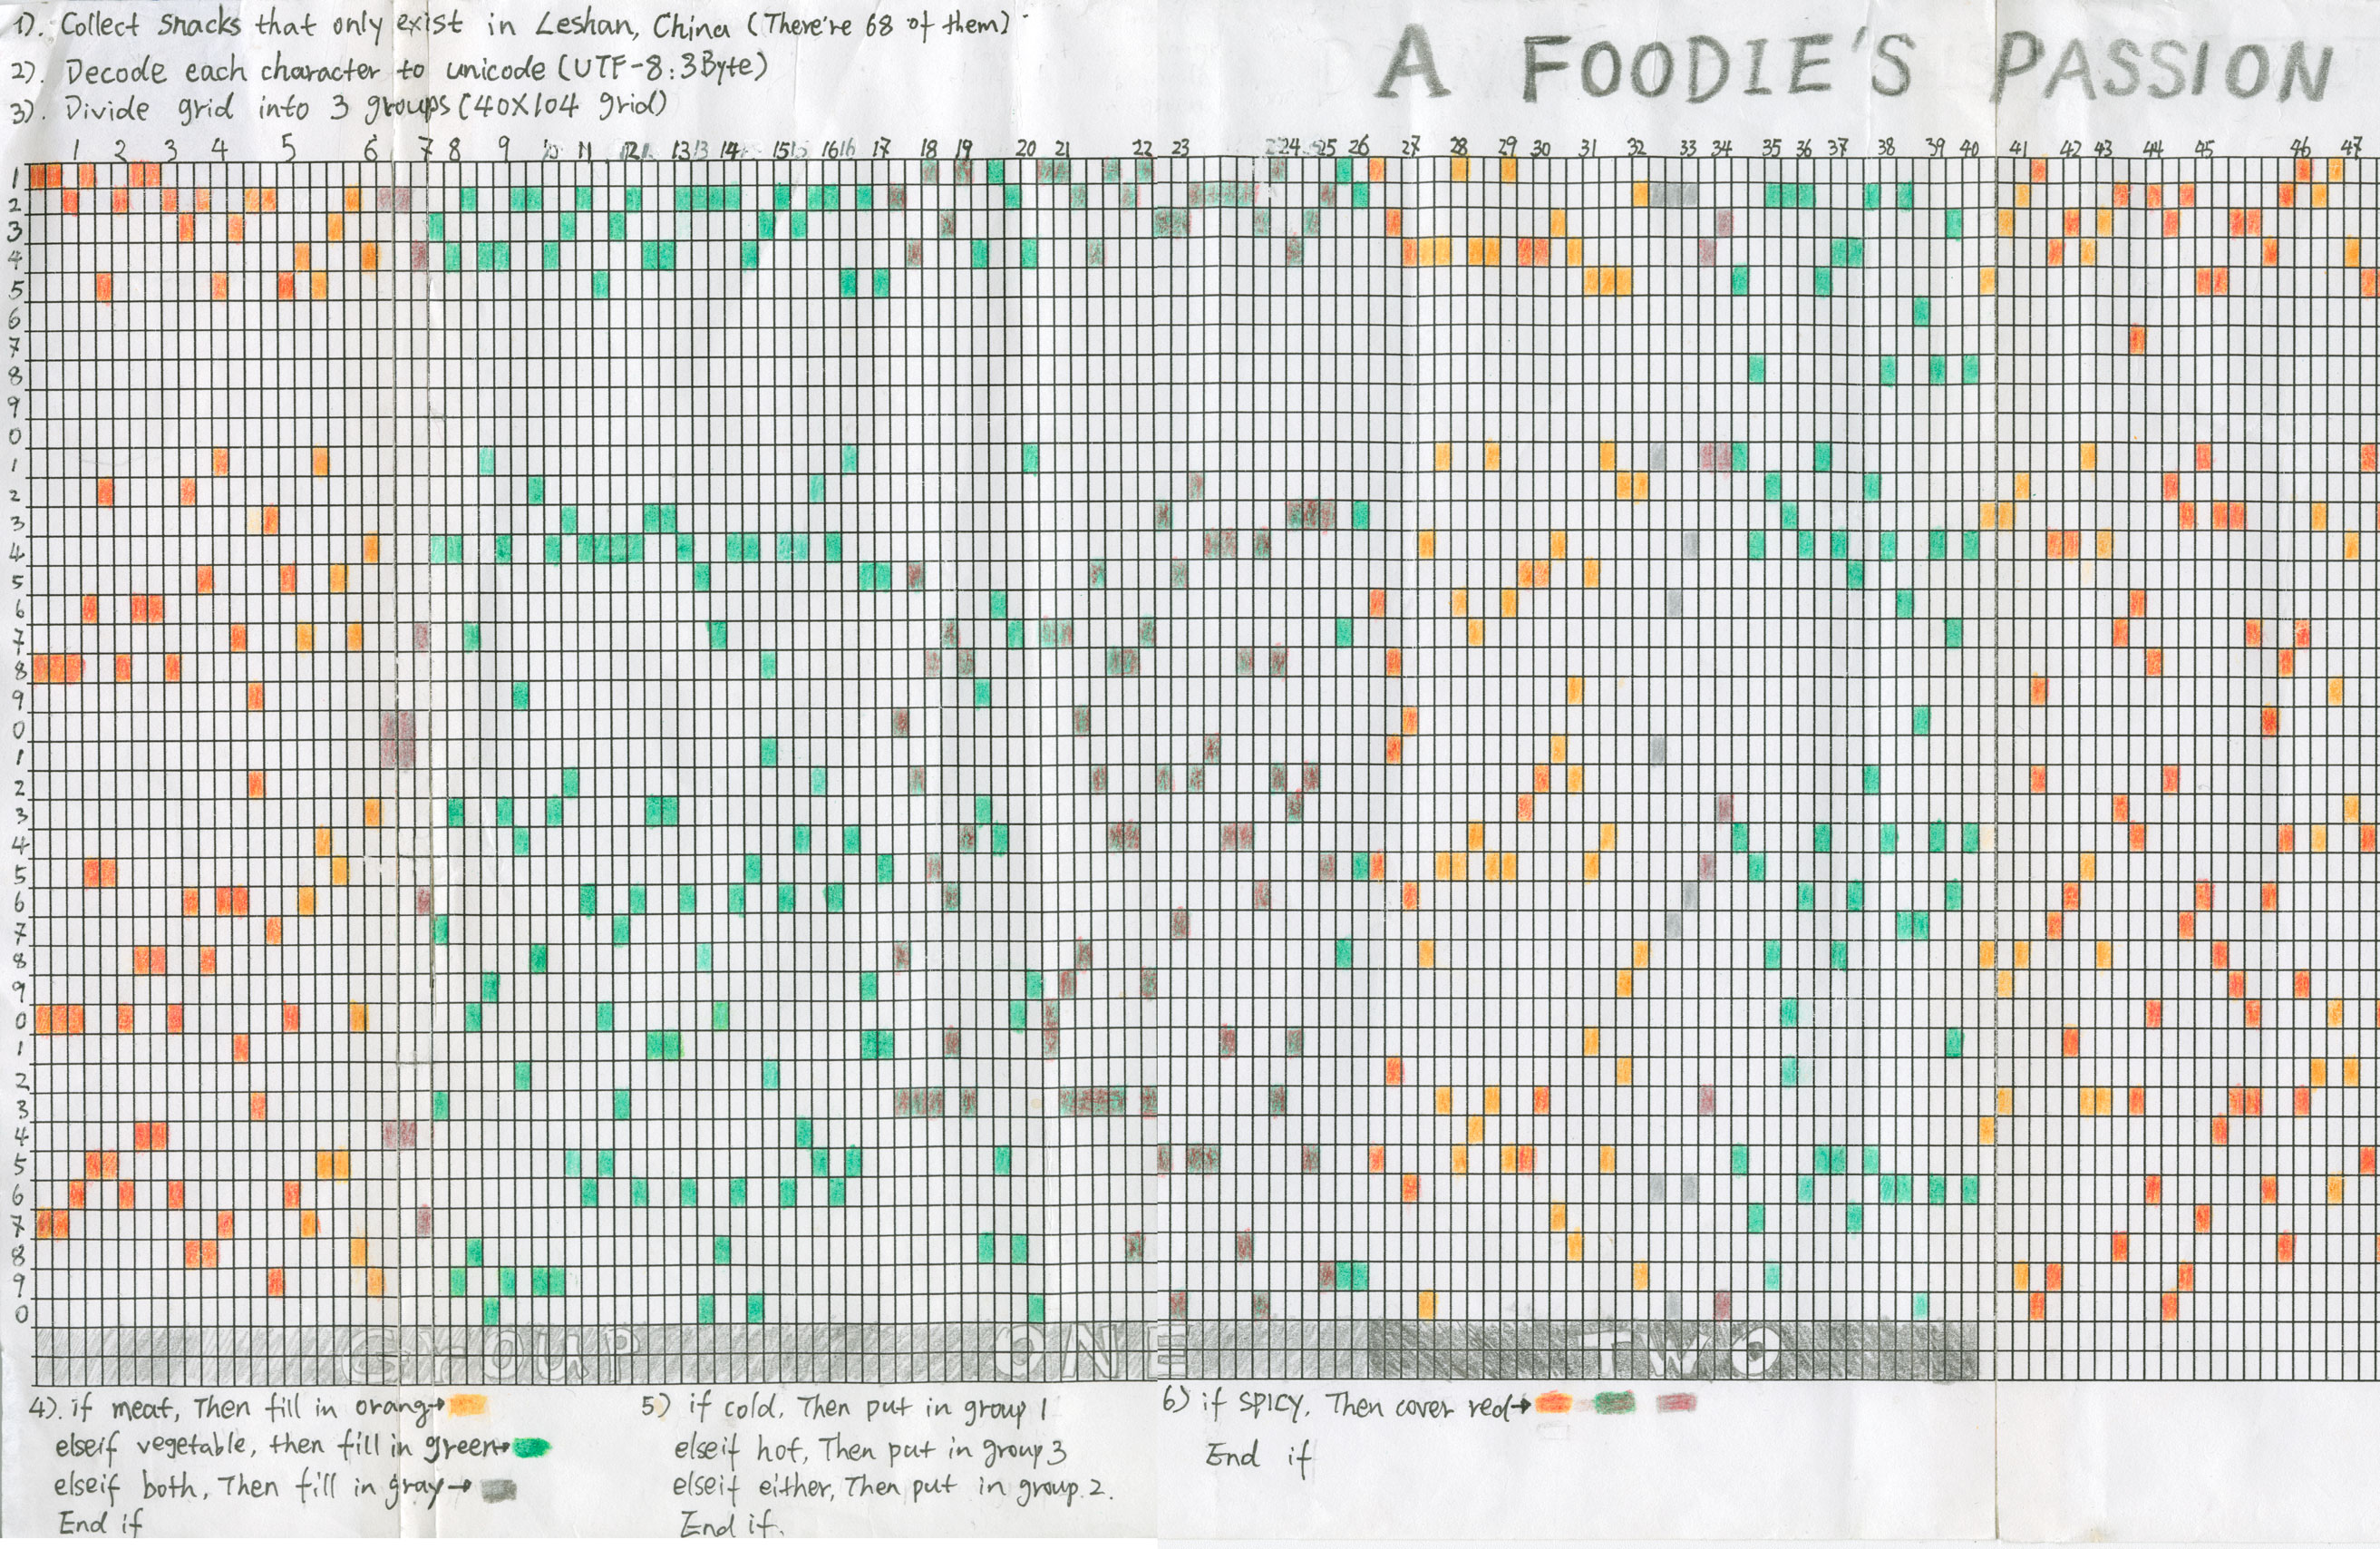 1). Collect snacks that only exist in Leshan, China (There're 68 of them)
2). Decode each character to unicode (UTF-8:3Byte)
3). Divide grid into 3 groups (40X104 grid)
A FOODIE'S PASSION
1 2 3 4 5 6 7 8 9 10 11 12 13 13 14 15 15 16 16 17 18 19 20 21 22 23 24 25 26 27 28 29 30 31 32 33 34 35 36 37 38 39 40 41 42 43 44 45 46 47
1
2
3
4
5
6
7
8
9
0
1
2
3
4
5
6
7
8
9
0
1
2
3
4
5
6
7
8
9
0
1
2
3
4
5
6
7
8
9
0
GROUP ONE TWO
4). if meat, Then fill in orang→
elseif vegetable, then fill in green→
elseif both, Then fill in gray→
End if
5) if cold, Then put in group 1
elseif hot, Then put in group 3
elseif either, Then put in group.2.
End if.
6) if SPICY, Then cover red→
End if